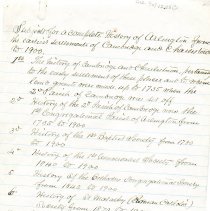 Subjects for a complete History of Arlington from
the earliest settlements of Cambridge and Charlestown
to 1900.
1st The history of Cambridge and Charlestown,
to the early settlement of these places and to
land grants were made up to 1735 when the
2d Parish of Cambridge was set off
2d History of the 2d Parish of Cambridge now the
1st Congregational Parish of Arlington from
to 1900.
3d History of the 1st Baptist Society from
to 1900.
4th History of the 1st Universalist Society from
1840 to 1900.
5th History of the Orthodox Congregational Society
from 1842 to 1900.
6th History of St Malachy (Roman Catholic)
Society from 1870 to 1900